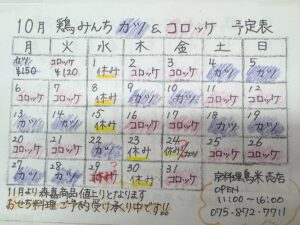 10月 鶏みんち カツ & コロッケ 予定表
月 火 水 木 金 土 日
カツ コロッケ 1 2 3 4 5
¥150 ¥120 休み コロッケ コロッケ カツ カツ
6 7 8 9 10 11 12
コロッケ コロッケ 休み カツ カツ コロッケ コロッケ
13 14 15 16 17 18 19
カツ カツ 休み コロッケ コロッケ カツ カツ
20 21 22 23 24 25 26
コロッケ コロッケ 休み 休み カツ コロッケ コロッケ
27 28 29 30 31
カツ カツ 休み コロッケ
11月より森嘉商品値上りとなります
おせち料理ご予約受け承り中です!!
京料理鳥米売店
OPEN
11:00〜16:00
075-872-7711